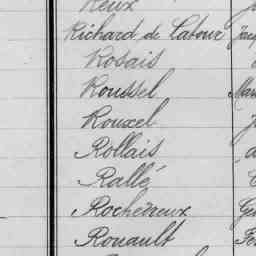 Reux
Richard de Latour
Rosais
Roussel
Rouxel
Rollais
Rallé
Rochereux
Rouault